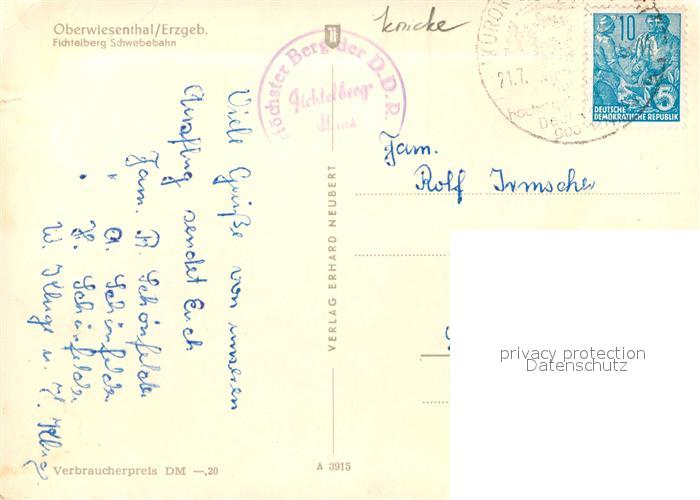 Oberwiesenthal/Erzgeb.
Fichtelberg Schwebebahn
knicke
Höchster Berg der D.D.R.
Fichtelberg
Haus
KUROR
21.7.
10
5
DEUTSCHE
DEMOKRATISCHE REPUBLIK
Viele Grüße von unseren
Ausflug sendet Euch
Fam. R. Schönfelder
" A. Schönfelder
" H. Schönfelder
W. Kluge u. H. Kluge
VERLAG ERHARD NEUBERT
Fam.
Rolf Irmscher
privacy protection
Datenschutz
Verbraucherpreis DM —,20
A 3915